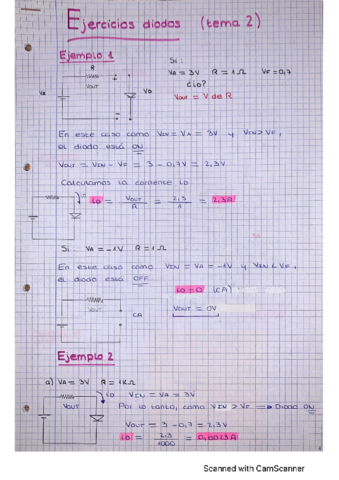 Ejercicios diodos (tema 2)
Ejemplo 1
Si:
R
VA = 3V R = 1 Ω VF = 0,7
VA
VOUT
VD
¿iD?
VOUT = V de R
En este caso como VIN = VA = 3V y VIN > VF,
el diodo está ON
VOUT = VIN - VF = 3 - 0,7V = 2,3V
Calculamos la corriente iD
iD
iD = VOUT / R = 2,3 / 1 = 2,3A
Si VA = -1V R = 1 Ω
En este caso como VIN = VA = -1V y VIN < VF,
el diodo está OFF
iD = 0 (CA)
VOUT
CA
VOUT = 0V
Ejemplo 2
a) VA = 3V R = 1KΩ
iD
VIN = VA = 3V
VOUT
Por lo tanto, como VIN > VF => Diodo ON
VOUT = 3 - 0,7 = 2,3V
iD = 2,3 / 1000 = 0,0023A
Scanned with CamScanner